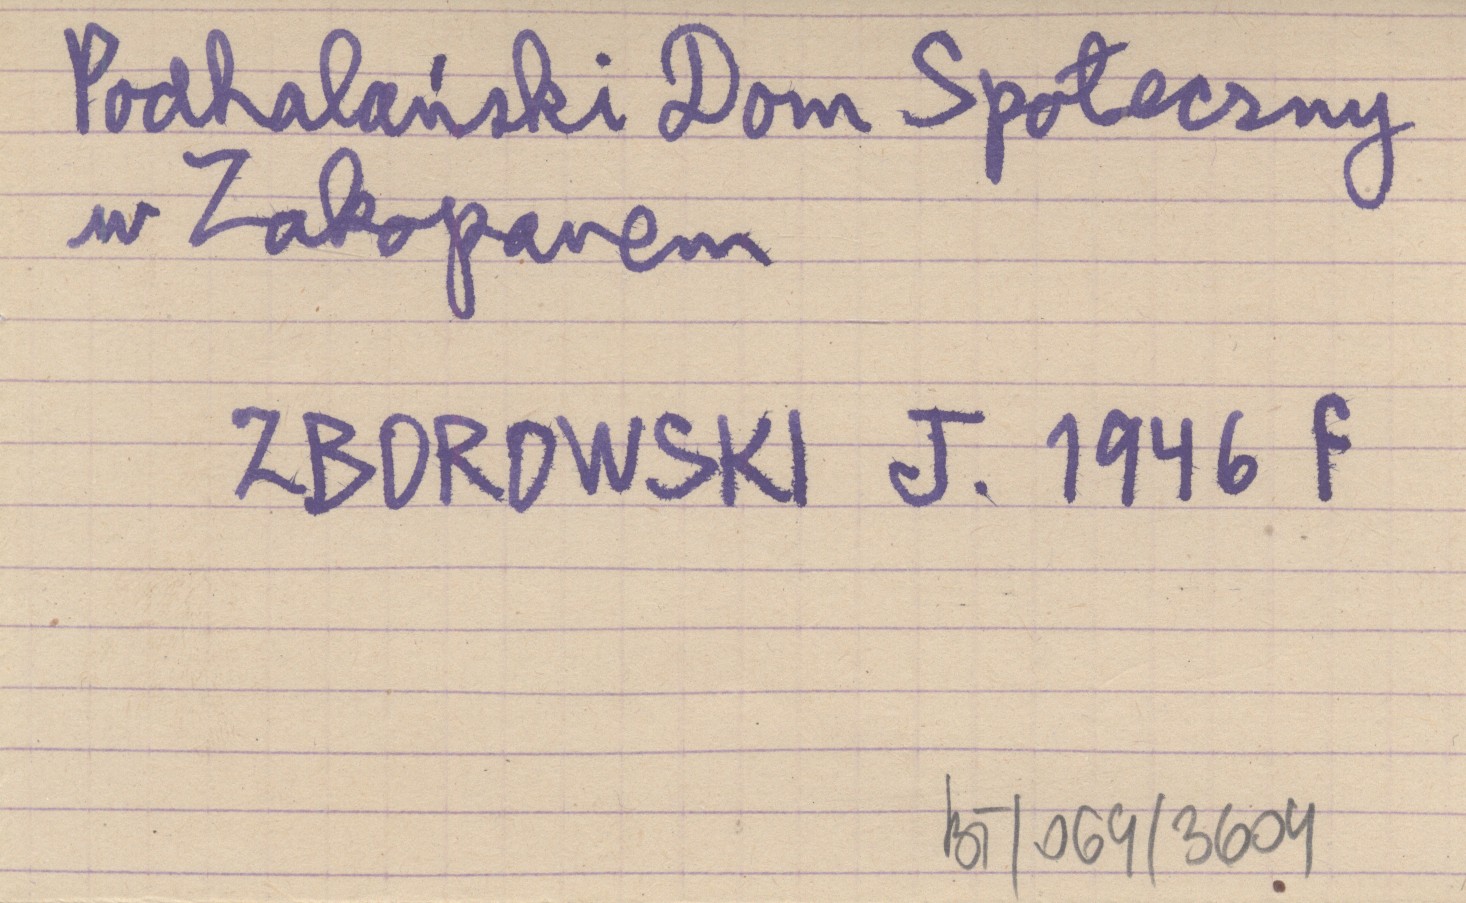 Podhalański Dom Społeczny
w Zakopanem
ZBOROWSKI J. 1946 F
/069/3604